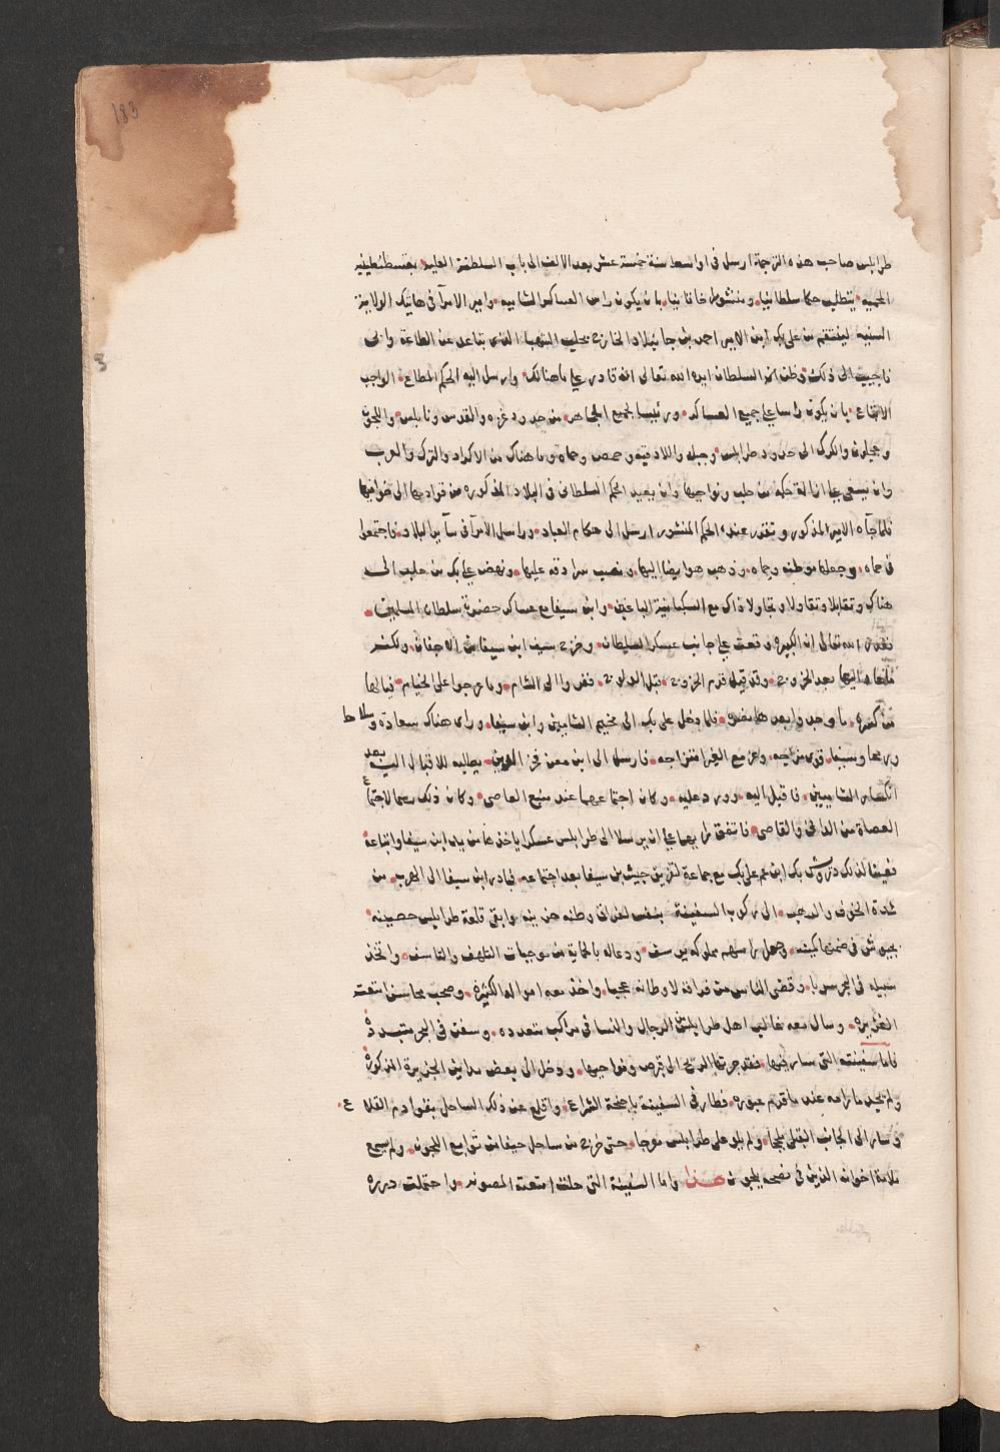 183
طرابلس صاحب هذه الترجمة ارسل فى اواسط سنة خمسة عشر بعد الالف الى باب السلطنة العليه بقسطنطينيه
المحميه يتطلب حكما سلطانيا ومنشورا خاقانيا بان يكون راس العساكر الشاميه وامير الامرآ فى هاتيك الولاية
السنية لينتقم من على بك ابن الامير احمد بن جانبلاد الخارج بحلب الشهبا الذى تباعد عن الطاعة وابى
فاجيب الى ذلك وظن ان السلطان ايده الله تعالى انه قادر على ما هنالك وارسل اليه الحكم المطاع الواجب
الاتباع بان يكون راسا على جميع العساكر ورئيسا لجميع الجماهر من حدود غزه والقدس ونابلس واللجون
وعجلون والكرك الى حدود طرابلس وجبله واللاذقيه وحمص وحماه وما هناك من الاكراد والترك والعرب
وان يسعى على ازالة حكمه من حلب ونواحيها وان يعيد الحكم السلطانى فى البلاد المذكوره من قوادمها الى خوافيها
فلما جآه الامر المذكور وتقرر عنده الحكم المنشور ارسل الى حكام العباد وراسل الامرآ فى سآير البلاد فاجتمعوا
فى حماه وجعلها موطنه وحماه وذهب هو ايضا اليها ونصب سرادقه عليها ونهض على بك من حلب الى
هناك وتقابلا وتقاولا وتجاولا ذاك مع السكبانية الباغين وابن سيفا مع عساكر حضرة سلطان المسلمين
فقدر الله تعالى ان الكسره وقعت على جانب عسكر السلطان وخرج سيف ابن سيفا من الاجفان ولكنه
بعد الخروج وقد قيل قدم الخروج قبل الولوج ففروا الى الشام وما عرجوا على الخيام فيا لها
من كسره ما وجد فلما دخل على بك الى مخيم الشاميين وابن سيفا وراى هناك سعادة وسلاحا
ورمحا وسيفا قوى مزاجه وعزم مع الغير امتزاجه فارسل الى ابن معن فخر الدين يطلبه للاقبال اليه بعد
انكسار الشاميين فاقبل اليه وورد عليه وكان اجتماعهما عند منبع العاصى وكان ذلك سببا لاجتماع
العصاة من الدانى والقاصى فاتفق رايهما على ان يرسلا الى طرابلس عسكرا ياخذها من يد ابن سيفا واتباعه
فعينا لذلك درويش بك ابن عم على بك مع جماعة لتمزيق جيش بن سيفا بعد اجتماعه فبادر ابن سيفا الى الهرب من
شدة الخوف والرهب الى ركوب السفينة بنفس لفراق وطنه حزينه وابقى قلعة طرابلس حصينه
بجيوش فى ضمنها كمينه وجعل راسهم مملوكه يوسف ودعا له بالحماية من موجبات التلهف والتاسف واتخذ
سبيله فى البحر سربا وقضى الناس من فراقه لاوطانه عجبا واخذ معه امواله الكثيرة وصحب محاسن امتعته
الغزيره وسار معه غالب اهل طرابلس من الرجال والنسا فى مراكب متعدده وسفن فى البحر متبدده
فاما سفينته التى سار فيها فقد جرتها الريح الى قبرص ونواحيها ودخل الى بعض مداين الجزيرة المذكورة
ولم يجد ما رامه عند ما قدم عبوره فطار فى السفينة باجنحة الشراع واقلع عن ذلك الساحل بقوادم القلاع
وسار الى الجانب القبلى ملجا ولم يلو على طرابلس معوجا حتى خرج من ساحل حيفا من توابع اللجون ولم يسمع
ملامة اخوانه الذين فى نصحه يلجون هذا واما السفينة التى حملت امتعته المصونه واحتملت درره